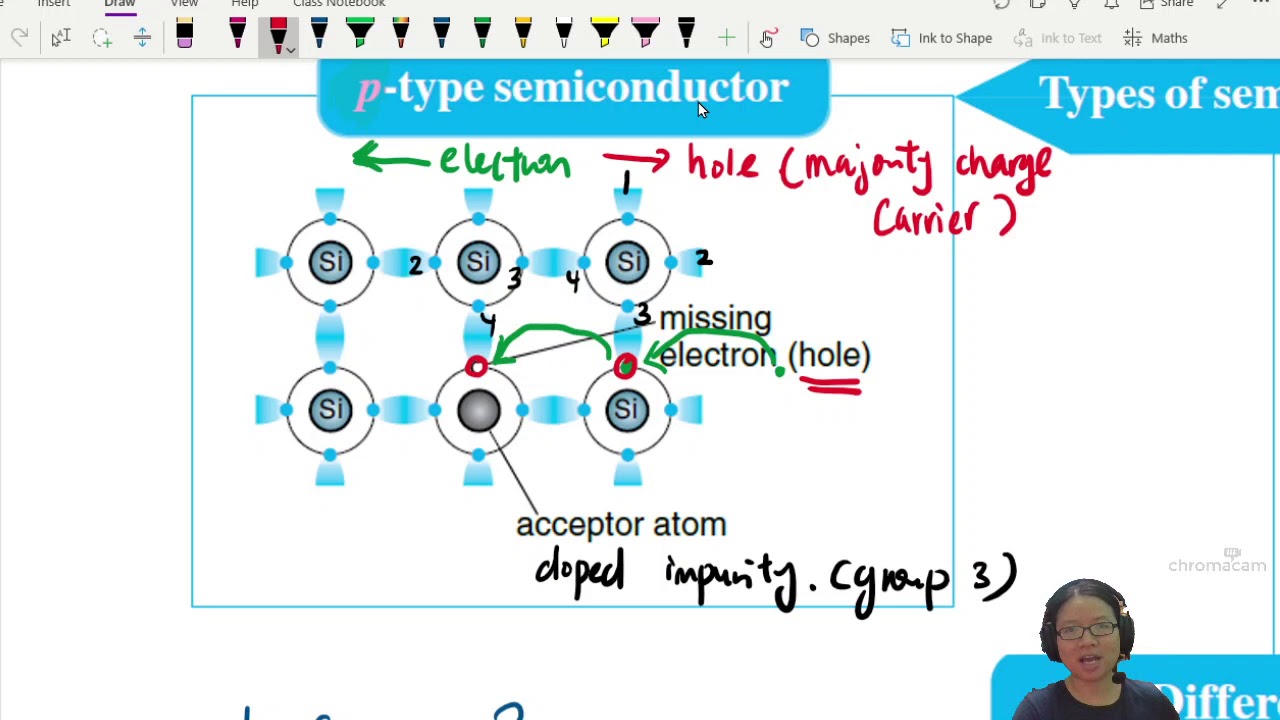 Insert Draw View Help Class Notebook Share
Shapes Ink to Shape Ink to Text Maths
p-type semiconductor
Types of sem
electron hole (majority charge
carrier)
1
Si Si Si
2 3 4 2
4 3
missing
electron (hole)
Si Si
acceptor atom
doped impurity. (group 3)
chromacam
Differ